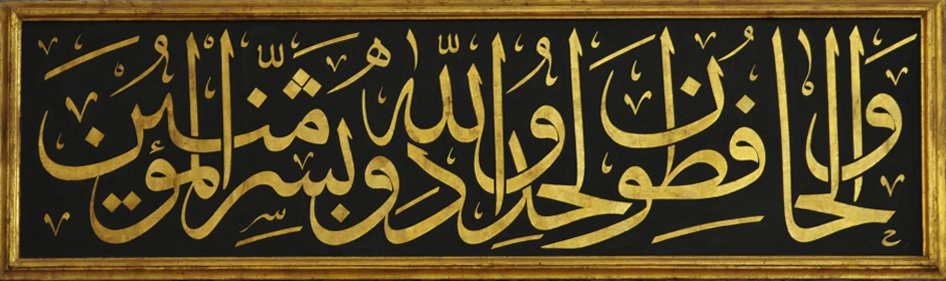 والحافظون لحدود الله وبشر المؤمنين